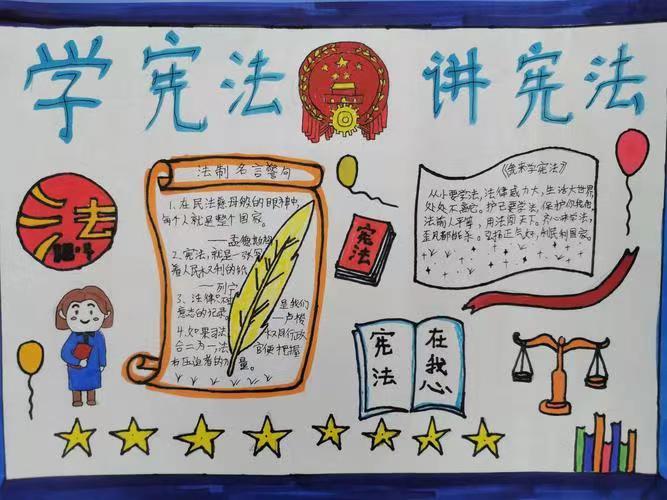 学宪法 讲宪法
法
12.4
法制名言警句
1.在民法慈母般的眼神中,
每个人就是整个国家。
——孟德斯鸠
2.宪法,就是一张写
着人民权利的纸
——列宁
3、法律 是我们
意志的记录。 ——卢梭
4.如果司法 权同行政
合二为一,法 官便把握
有压迫者的力量。
宪法
《我来学宪法》
从小要学法,法律威力大,生活大世界,
处处不离它。护己要学法,保护你我他,
法前人平等,用法闯天下。齐心来学法,
歪风都能杀。弘扬正气好,利民利国家。
宪法
在我心